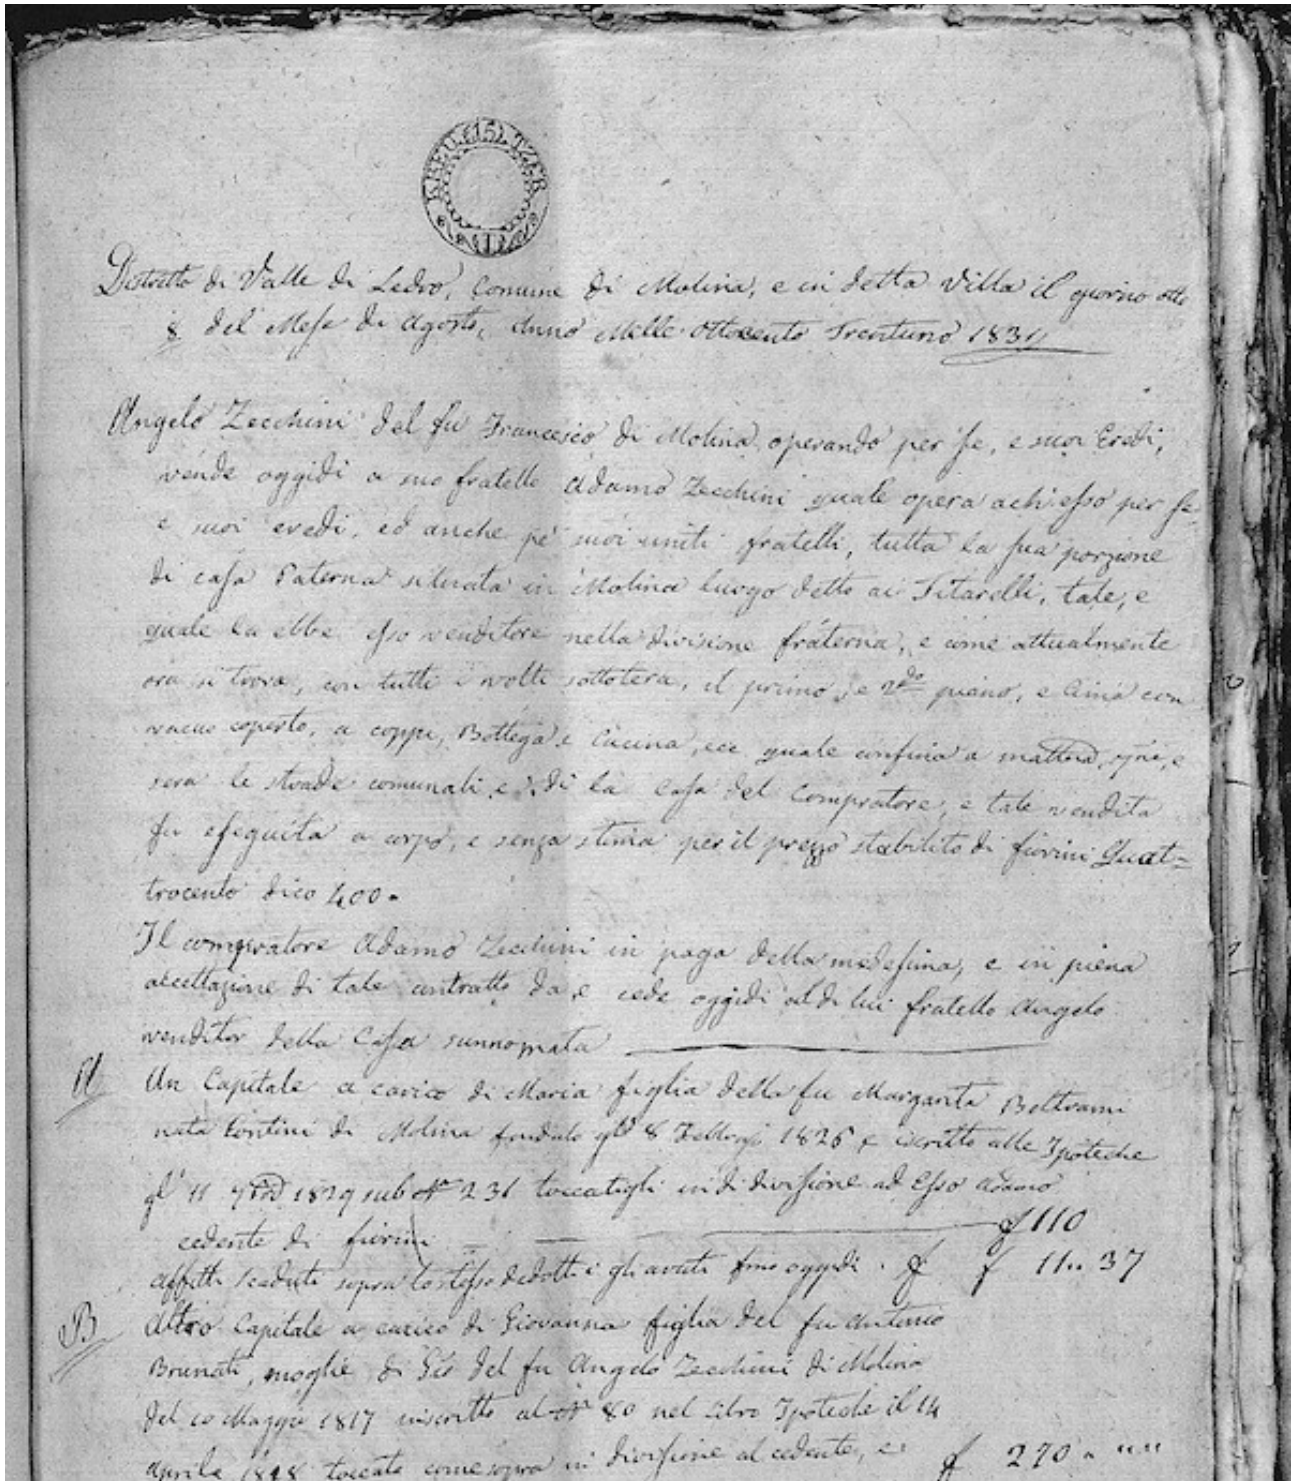 15 KREUTZER
Distretto di Valle di Ledro, Comune di Molina, e in detta Villa il giorno otto
8 del Mese di Agosto, Anno Mille Ottocento Trentuno 1831
Angelo Zecchini del fu Francesco di Molina operando per se, e suoi Eredi,
vende oggidi a suo fratello Adamo Zecchini quale opera per se
e suoi eredi, ed anche pe' suoi uniti fratelli, tutta la sua porzione
di casa Paterna situata in Molina luogo detto ai Sitarelli, tale, e
quale la ebbe esso venditore nella divisione fraterna, e come attualmente
ora si trova, con tutti i volti sottotera, il primo, e 2do piano, e Cima con
coperto, a coppi, Bottega, e Cucina, ecc quale confina a mattina, e
sera le strade comunali, e di la casa del Compratore, e tale vendita
fu eseguita a corpo, e senza stima per il prezzo stabilito di fiorini Quat=
trocento dico 400.
Il compratore Adamo Zecchini in paga della medesima, e in piena
accettazione di tale contratto da, e cede oggidi al di lui fratello Angelo
venditor della Casa sunnomata
A Un Capitale a carico di Maria figlia della fu Margarita Beltrami
nata Contini di Molina fondato gli 8 1826 e iscritto alle Ipoteche
gli 11 1829 sub No 231 toccatogli in divisione ad Esso Adamo
cedente di fiorini f 110
affitti scaduti sopra lo stesso dedotti gli avuti fino oggidi. f f 11.. 37
B Altro Capitale a carico di Giovanna figlia del fu Antonio
Brunati, moglie di Gio del fu Angelo Zecchini di Molina
del 10 Maggio 1817 inscritto al No 80 nel Libro Ipoteche il 14
Aprile 1818 toccato come sopra in divisione al cedente, e f 270 " ""